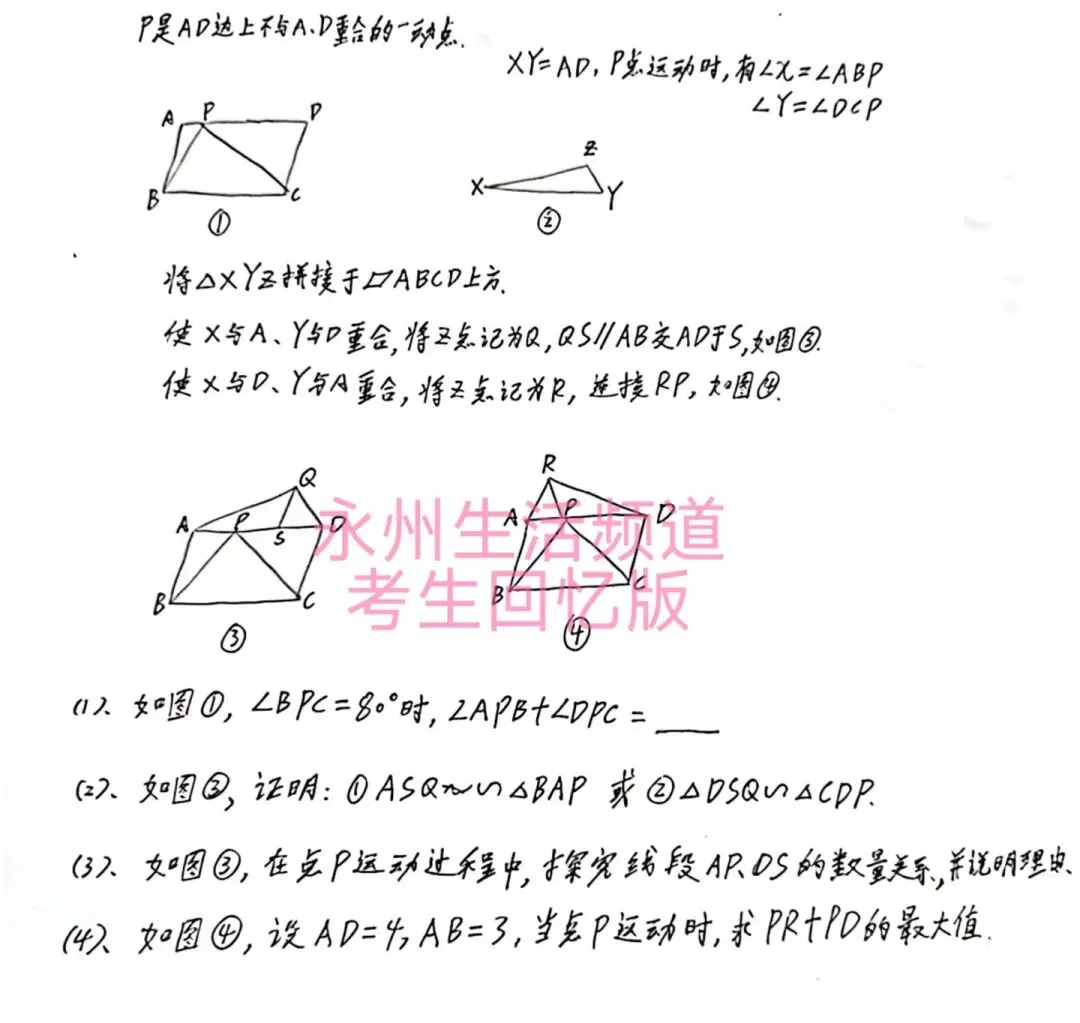 P是AD边上不与A、D重合的一动点.
XY=AD, P点运动时,有∠X=∠ABP
∠Y=∠DCP
A P D
B C
①
Z
X Y
②
将△XYZ拼接于▱ABCD上方.
使X与A、Y与D重合,将Z点记为Q,QS//AB交AD于S,如图③.
使X与D、Y与A重合,将Z点记为R,连接RP,如图④.
Q
A P S D
B C
③
R
A P D
B C
④
永州生活频道
考生回忆版
(1)、如图①,∠BPC=80°时,∠APB+∠DPC=
(2)、如图③,证明:①ASQ∽△BAP 或 ②△DSQ∽△CDP.
(3)、如图③,在点P运动过程中,探究线段AP、DS的数量关系,并说明理由.
(4)、如图④,设AD=4,AB=3,当点P运动时,求PR+PD的最大值.